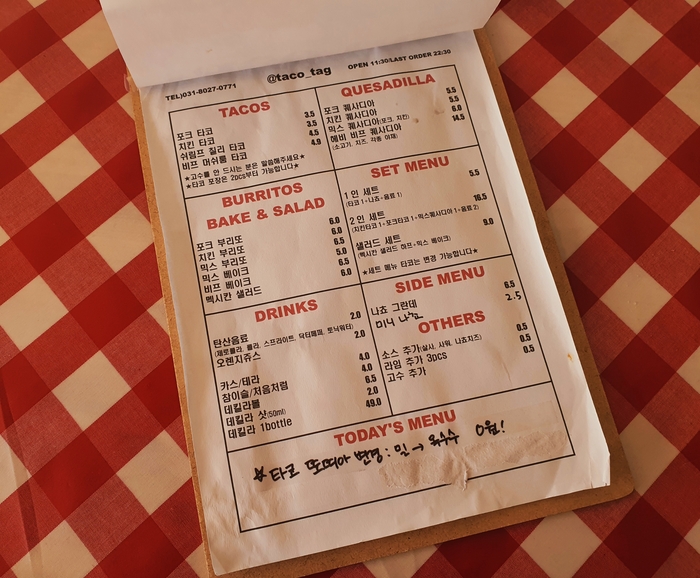 TEL)031-8027-0771
@taco_tag
OPEN 11:30/LAST ORDER 22:30
TACOS
포크 타코 3.5
치킨 타코 3.5
쉬림프 칠리 타코 4.5
비프 머쉬룸 타코 4.9
★고수를 안 드시는 분은 말씀해주세요★
★타코 포장은 2pcs부터 가능합니다★
QUESADILLA
포크 퀘사디아 5.5
치킨 퀘사디아 5.5
믹스 퀘사디아(포크, 치킨) 6.0
헤비 비프 퀘사디아 14.5
(소고기, 치즈, 각종 야채)
BURRITOS
BAKE & SALAD
포크 부리또 6.0
치킨 부리또 6.0
믹스 부리또 6.5
믹스 베이크 5.0
비프 베이크 6.5
멕시칸 샐러드 6.0
SET MENU
1인 세트 5.5
(타코 1+나쵸+음료 1)
2인 세트 16.5
(치킨타코 1+포크타코 1+믹스퀘사디아 1+음료 2)
샐러드 세트 9.0
(멕시칸 샐러드 하프+믹스 베이크)
★세트 메뉴 타코는 변경 가능합니다★
DRINKS
탄산음료 2.0
(제로콜라, 콜라, 스프라이트, 닥터페퍼, 토닉워터)
오렌지쥬스 2.0
카스/테라 4.0
참이슬/처음처럼 4.0
데킬라볼 6.5
데킬라 샷(50ml) 2.0
데킬라 1bottle 49.0
SIDE MENU
나쵸 그란데 6.5
미니 나쵸 2.5
OTHERS
소스 추가(살사, 사워, 나쵸치즈) 0.5
라임 추가 3pcs 0.5
고수 추가 0.5
TODAY'S MENU
☆타코 또띠아 변경: 밀 → 옥수수 0원!